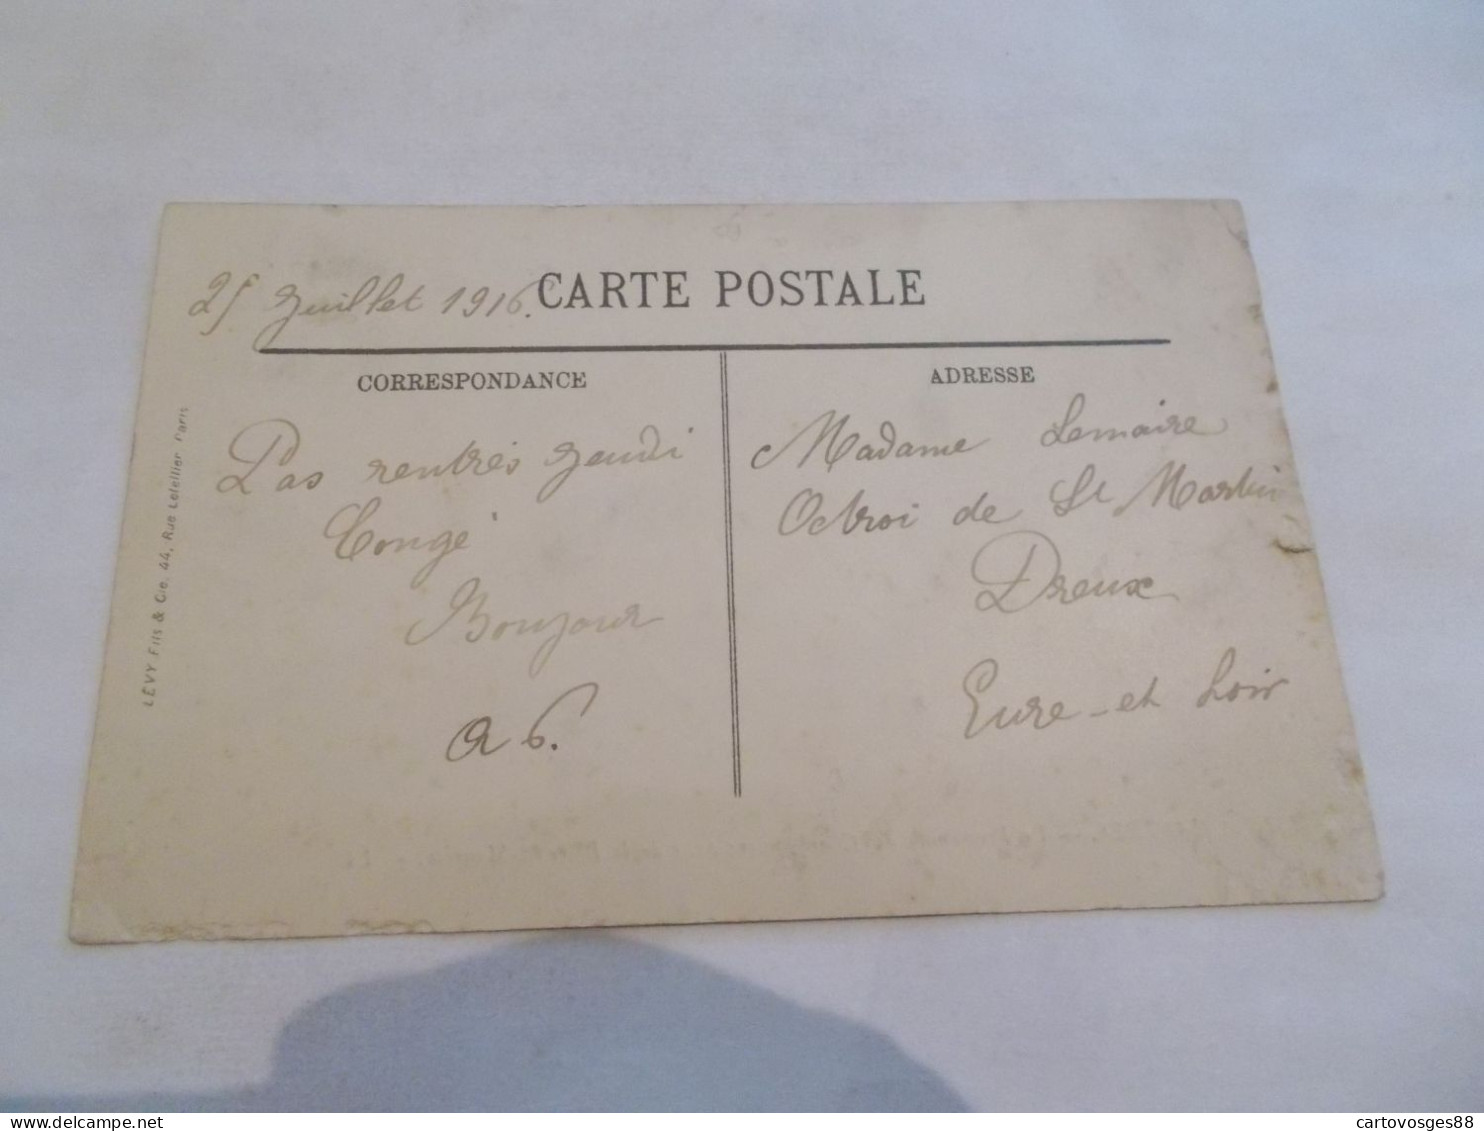 25 Juillet 1916.
CARTE POSTALE
CORRESPONDANCE
ADRESSE
LÉVY Fils & Cie. 44, Rue Letellier Paris
Pas rentrés Jeudi
Congé
Bonjour
Madame Lemaire
Octroi de St Martin
Dreux
Eure-et Loir
cartovosges88